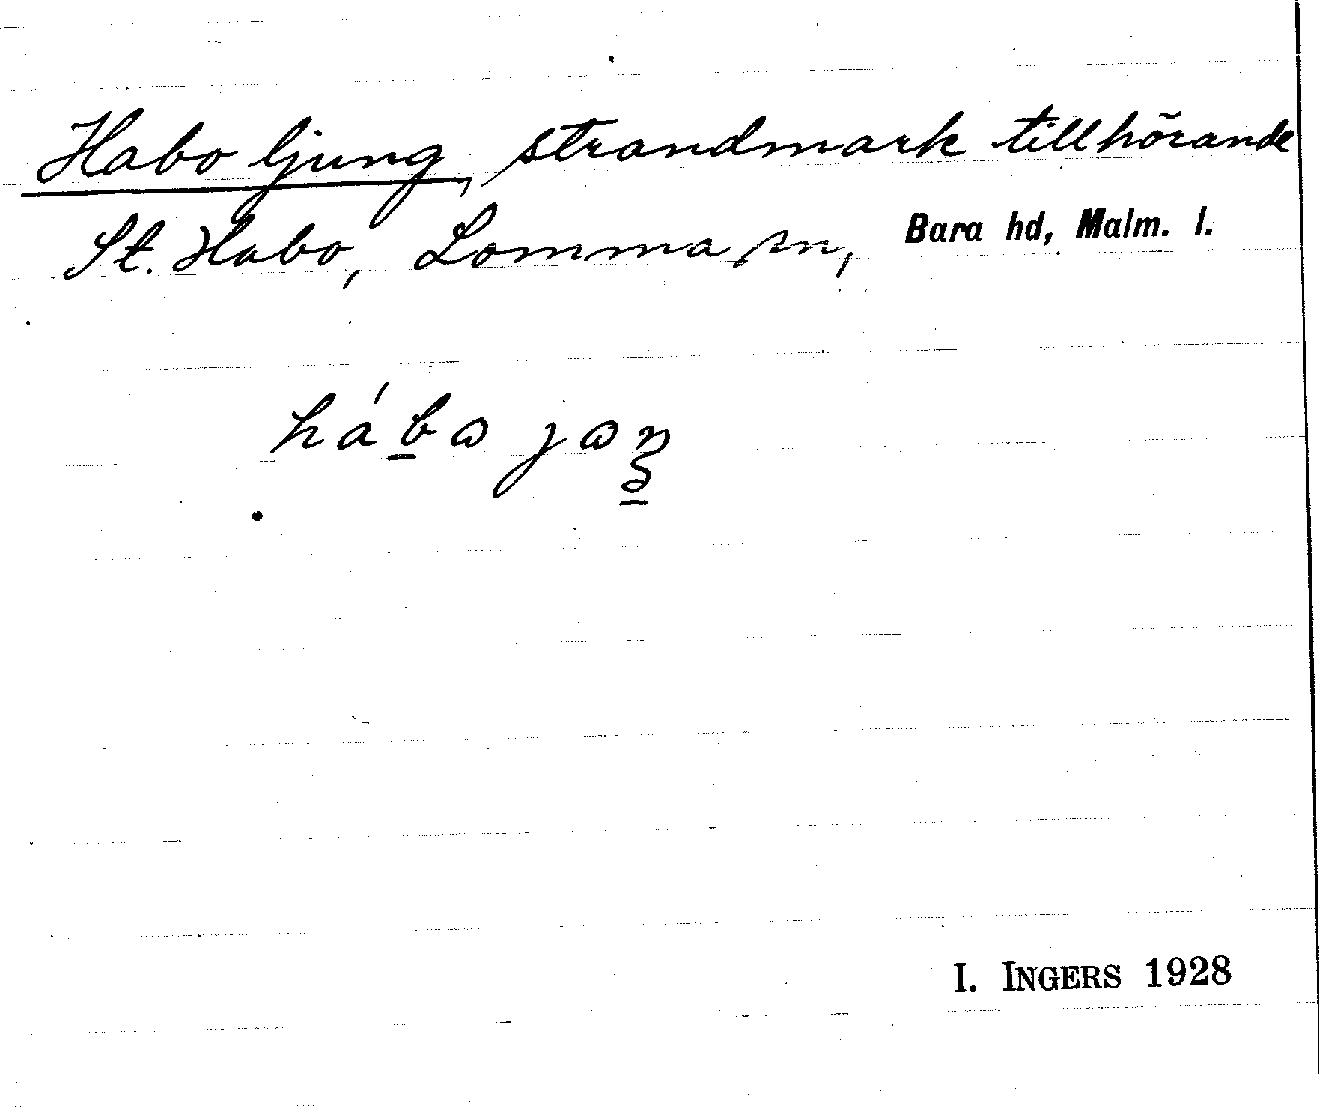 Habo ljung, strandmark tillhörande
St. Habo, Lomma sn, Bara hd, Malm. l.
háb̲ɷ jɷŋ̲
I. INGERS 1928